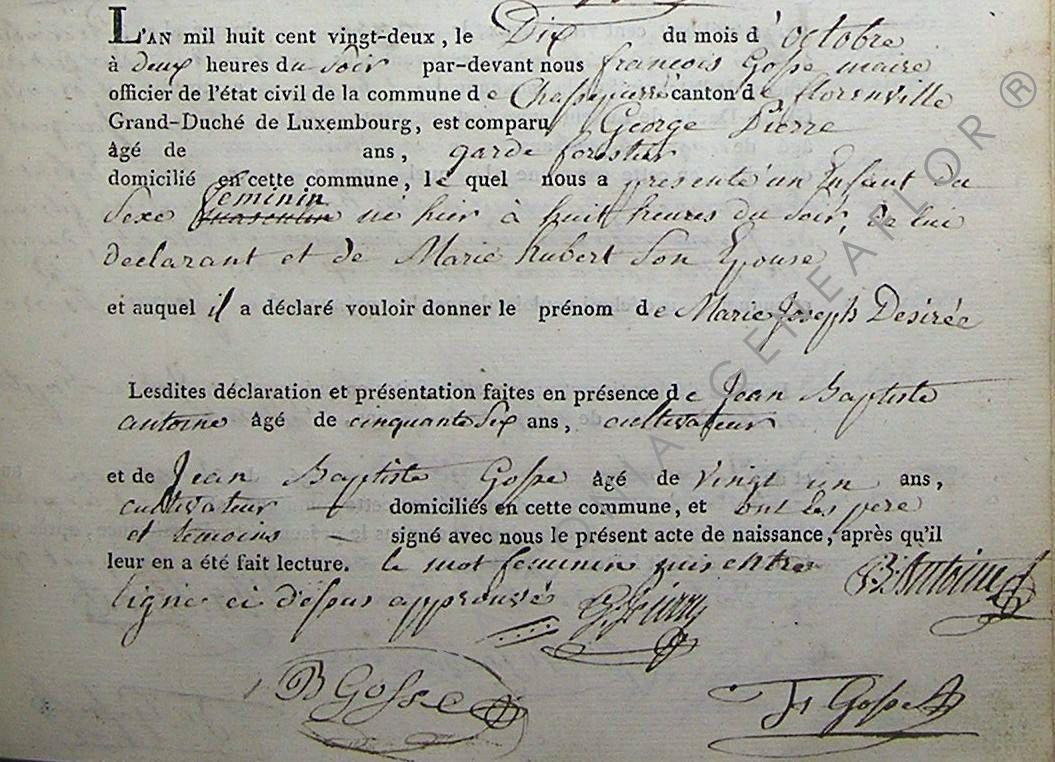 L'AN mil huit cent vingt-deux, le Dix du mois d'octobre
à deux heures du soir par-devant nous françois Gosse maire
officier de l'état civil de la commune de Chassepierre canton de florenville
Grand-Duché de Luxembourg, est comparu George Pierre
âgé de ans, garde forestier
domicilié en cette commune, le quel nous a presenté un Enfant du
feminin
Sexe masculin né hier à huit heures du soir, de lui
declarant et de Marie hubert Son Epouse
et auquel il a déclaré vouloir donner le prénom de Marie Joseph Desirée
Lesdites déclaration et présentation faites en présence de Jean Baptiste
antoine âgé de cinquante Six ans, cultivateur
et de Jean Baptiste Gosse âgé de vingt un ans,
cultivateur domiciliés en cette commune, et ont les pere
et temoins signé avec nous le présent acte de naissance, après qu'il
leur en a été fait lecture. le mot feminin mis entre
ligne ci dessus approuvé
G Pierre
JB Antoine
JB Gosse
F Gosse
GENEALOR ®